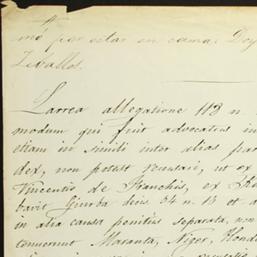 mó por estar en cama. Doy
Zeballos.
Larrea allegatione 118 n.
modum qui fuit advocatus in
etiam in simili inter alias par
dex, non potest recusari, ut ex
Vincentio de Franchis, ex
bavit Giurba decis 54 n. 13 et a
in alia causa penitus separata, non
tenuerunt Maranta, Niger, Hond